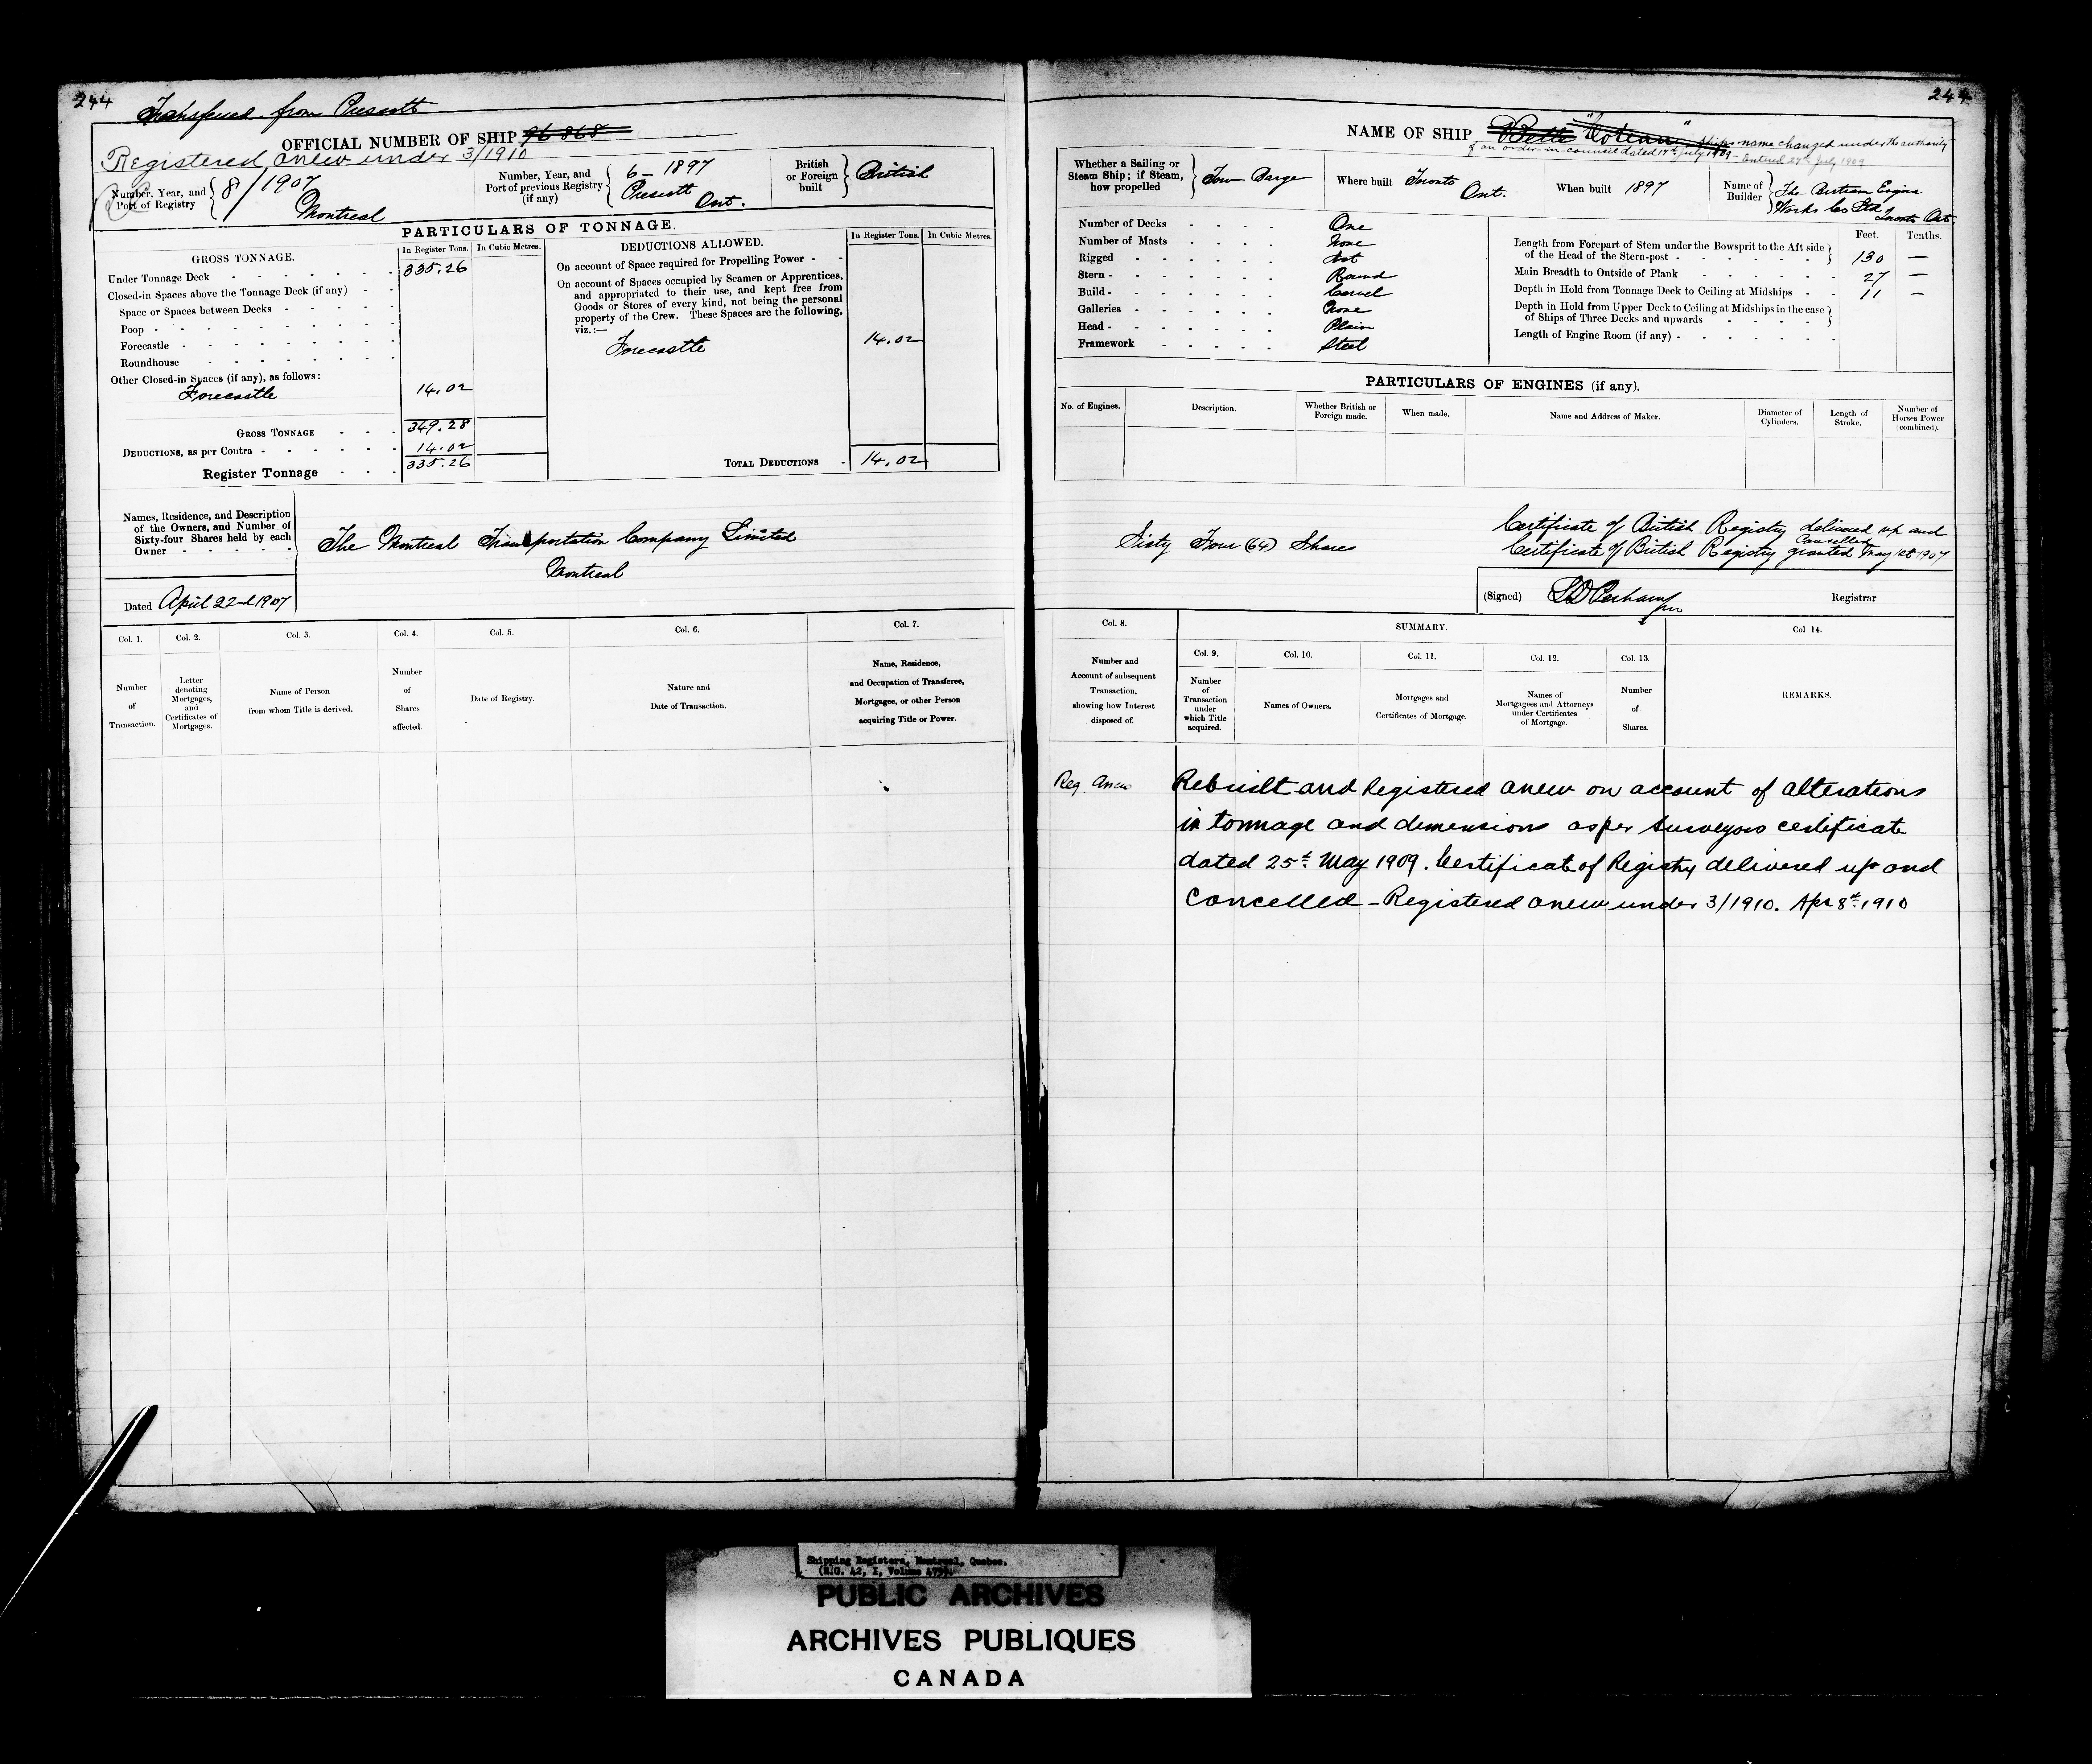 244
Transferred from Prescott
OFFICIAL NUMBER OF SHIP 96 868
Registered anew under 3/1910
Number, Year, and Port of Registry 8/1907 Montreal
Number, Year, and Port of previous Registry (if any) 6-1897 Prescott Ont.
British or Foreign built British
PARTICULARS OF TONNAGE.
GROSS TONNAGE.
In Register Tons. In Cubic Metres.
Under Tonnage Deck 335.26
Closed-in Spaces above the Tonnage Deck (if any)
Space or Spaces between Decks
Poop
Forecastle
Roundhouse
Other Closed-in Spaces (if any), as follows:
Forecastle 14.02
GROSS TONNAGE 349.28
DEDUCTIONS, as per Contra 14.02
Register Tonnage 335.26
DEDUCTIONS ALLOWED.
In Register Tons. In Cubic Metres.
On account of Space required for Propelling Power
On account of Spaces occupied by Seamen or Apprentices,
and appropriated to their use, and kept free from
Goods or Stores of every kind, not being the personal
property of the Crew. These Spaces are the following,
viz.:—
Forecastle 14.02
TOTAL DEDUCTIONS 14.02
Names, Residence, and Description
of the Owners, and Number of
Sixty-four Shares held by each
Owner
The Montreal Transportation Company Limited
Montreal
Dated April 22nd 1907
Col. 1. Number of Transaction.
Col. 2. Letter denoting Mortgages, and Certificates of Mortgages.
Col. 3. Name of Person from whom Title is derived.
Col. 4. Number of Shares affected.
Col. 5. Date of Registry.
Col. 6. Nature and Date of Transaction.
Col. 7. Name, Residence, and Occupation of Transferee, Mortgagee, or other Person acquiring Title or Power.
244
NAME OF SHIP Belle "Coteau" Ships name changed under the authority
of an order-in-council dated 17th July 1909 - Entered 27th July 1909
Whether a Sailing or Steam Ship; if Steam, how propelled Tow Barge
Where built Toronto Ont.
When built 1897
Name of Builder The Bertram Engine Works Co Ltd Toronto Ont
Number of Decks One
Number of Masts None
Rigged Not
Stern Round
Build Carvel
Galleries None
Head Plain
Framework Steel
Feet. Tenths.
Length from Forepart of Stem under the Bowsprit to the Aft side
of the Head of the Stern-post 130 —
Main Breadth to Outside of Plank 27 —
Depth in Hold from Tonnage Deck to Ceiling at Midships 11 —
Depth in Hold from Upper Deck to Ceiling at Midships in the case
of Ships of Three Decks and upwards
Length of Engine Room (if any)
PARTICULARS OF ENGINES (if any).
No. of Engines. Description. Whether British or Foreign made. When made. Name and Address of Maker. Diameter of Cylinders. Length of Stroke. Number of Horses Power (combined).
Sixty Four (64) Shares
Certificate of British Registry delivered up and
Cancelled
Certificate of British Registry granted May 1st 1907
(Signed) Registrar
Col. 8. Number and Account of subsequent Transaction, showing how Interest disposed of.
SUMMARY.
Col. 9. Number of Transaction under which Title acquired.
Col. 10. Names of Owners.
Col. 11. Mortgages and Certificates of Mortgage.
Col. 12. Names of Mortgagees and Attorneys under Certificates of Mortgage.
Col. 13. Number of Shares.
Col 14. REMARKS.
Reg. Anew Rebuilt and Registered anew on account of alterations
in tonnage and dimensions as per surveyors certificate
dated 25th May 1909. Certificate of Registry delivered up and
Cancelled - Registered anew under 3/1910. Apr 8th 1910
Shipping Registers, Montreal, Quebec.
(R.G. 42, I, Volume
PUBLIC ARCHIVES
ARCHIVES PUBLIQUES
CANADA